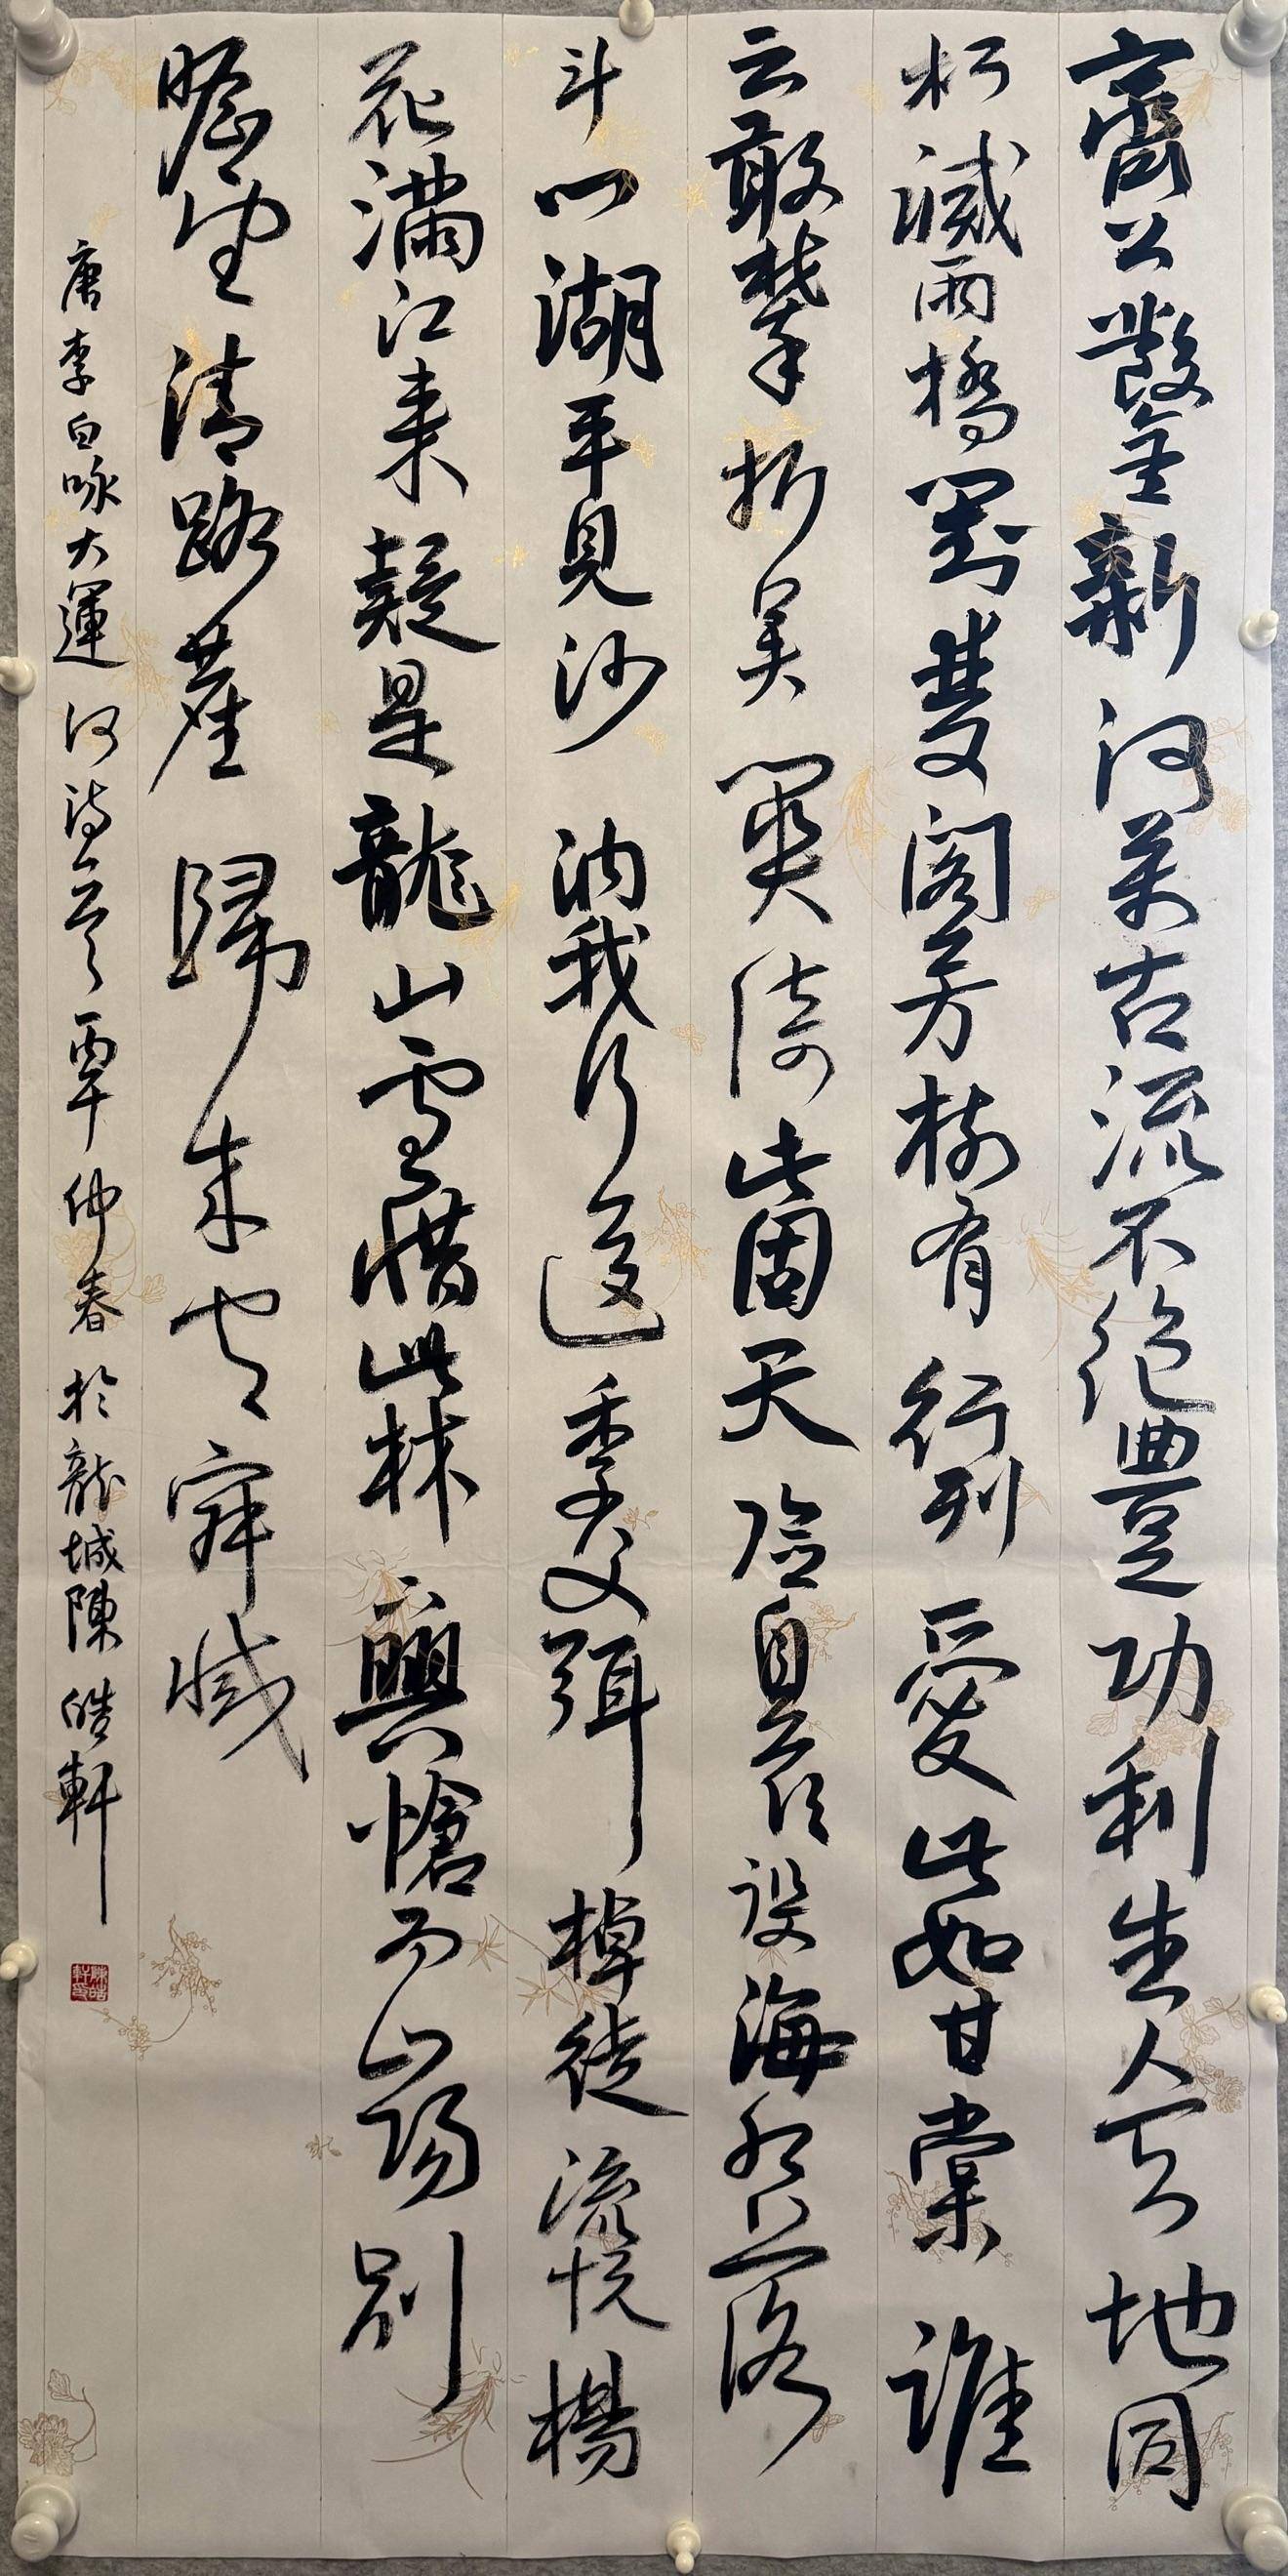 齊公鑿新河萬古流不絕豐功利生人天地同
朽滅兩橋對雙閣芳樹有行列愛此如甘棠誰
云敢攀折吴關倚此固天險自兹設海水落
斗門湖平見沙汭我行送季父弭棹徒流悦楊
花滿江来疑是龍山雪惜此林下興愴為山陽别
瞻望清路塵歸來空寂滅
唐李白咏大運河詩丙午仲春於龍城陳皓軒
陳皓軒印